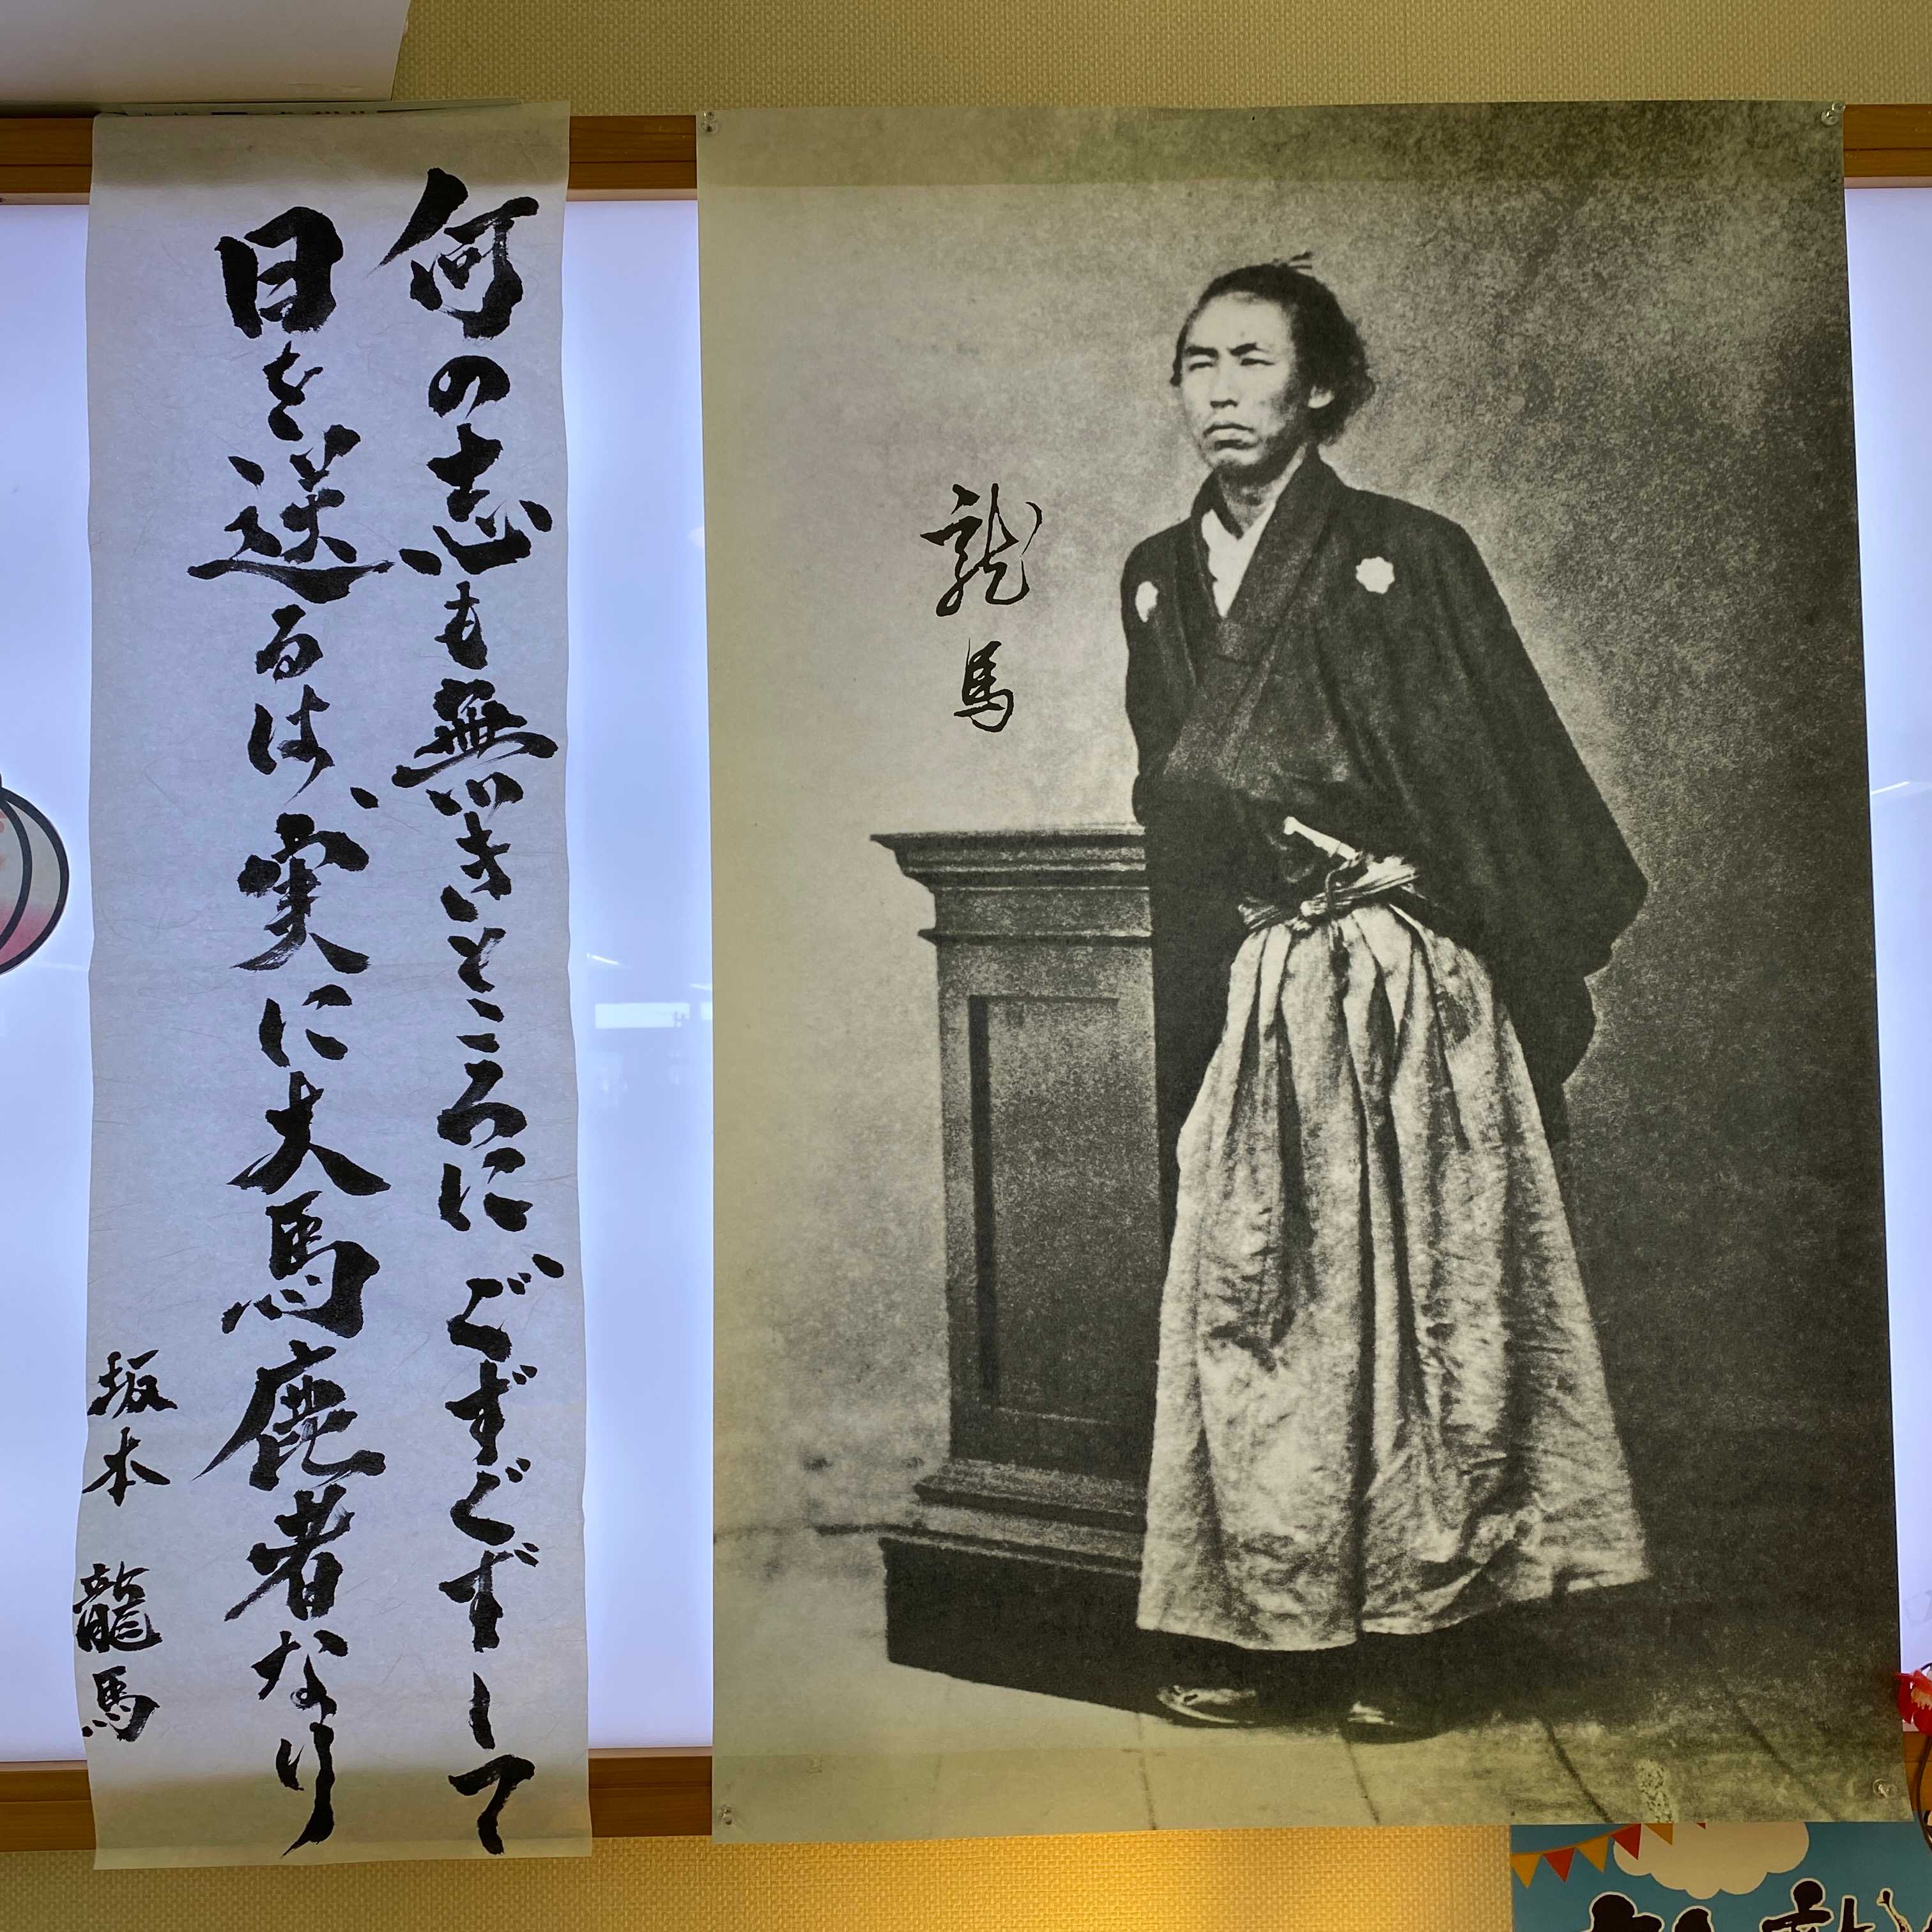 何の志も無きところに、ごずぐずして
日を送るは、実に大馬鹿者なり
坂本 龍馬
龍馬